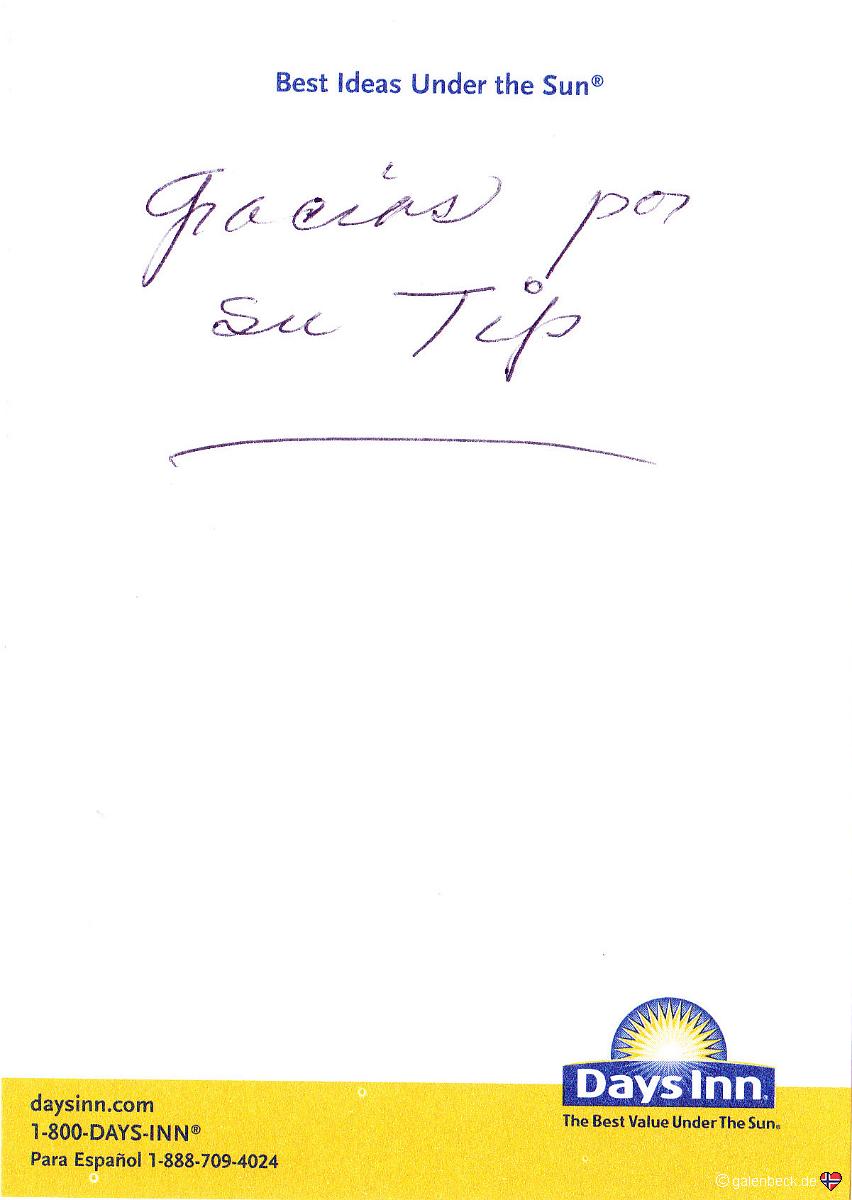 Best Ideas Under the Sun®
Gracias por
su Tip
Days Inn®
The Best Value Under The Sun®
daysinn.com
1-800-DAYS-INN®
Para Español 1-888-709-4024
© galenbeck.de